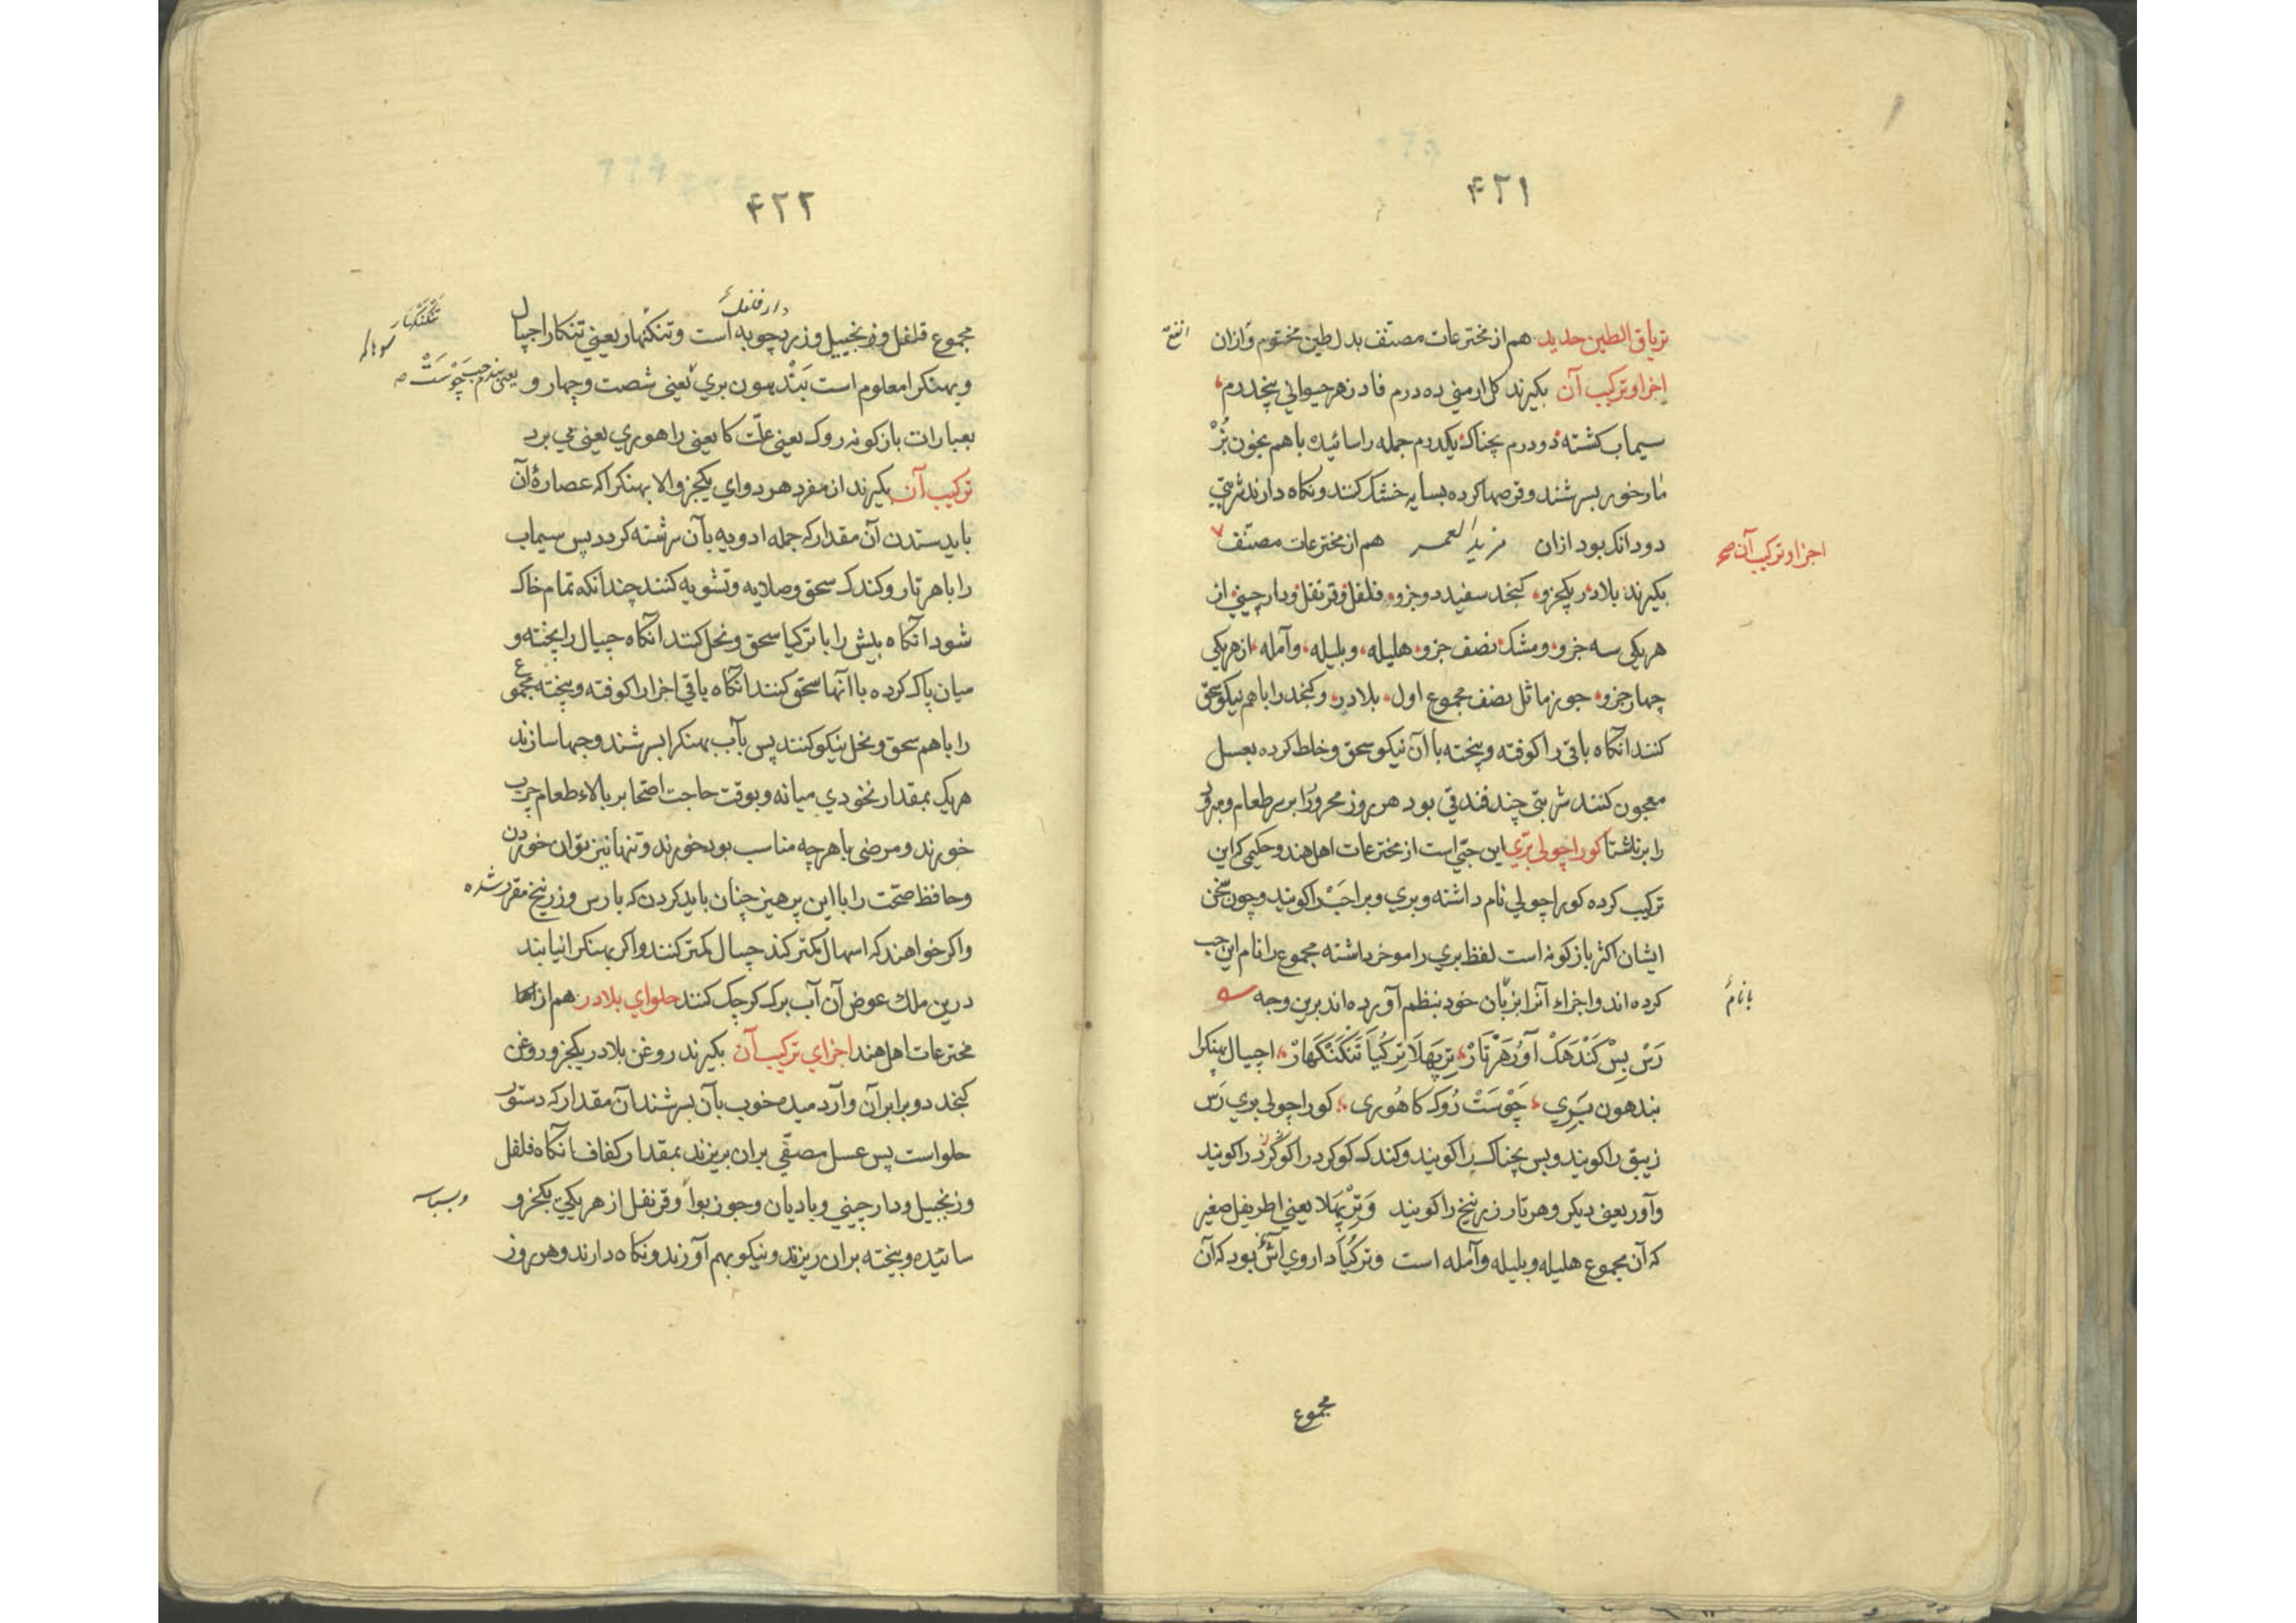 ۴۲۱
تریاق الطین جدید هم از مخترعات مصنف بدل طین مختوم و ازان
انفع
اجزا و ترکیب آن بکیرند کل ارمنی ده درم فادزهر حیوانی پنجدرم
سیماب کشته دو درم بچناک یکدرم جمله را سائیده باهم بخون بز
مار خور بسرشند و قرصها کرده بسایه خشک کنند و نکاه دارند شربتی
دو دانک بود ازان مزید العمر هم از مخترعات مصنف
اجزا و ترکیب آن صح
بکیرند بلادر یکجزو، کنجد سفید دو جزو، فلفل و قرنفل و دارچینی از
هریکی سه جزو و مشک نصف جزو، هلیله، و بلیله، و آمله، از هریکی
چهار جزو جوز ماثل نصف مجموع اول، بلادر، و کنجد را باهم نیکو سحق
کنند آنکاه باقی را کوفته و بیخته با آن نیکو سحق و خلط کرده بعسل
معجون کنند شربتی چند فندقی بود هر روز محرور را بر سر طعام و مبرود
را بر ناشتا کورا چولی بری این حبّی است از مخترعات اهل هند و حکیمی که این
ترکیب کرده کورا چولی نام داشته و بری و برا حب را کویند و چون سخن
ایشان اکثر بازکونه است لفظ بری را موخر داشته مجموع را نام این حب
کرده اند و اجزاء آنرا بزبان خود بنظم آورده اند برین وجه
با نام
رَسْ بِسْ کَنْدَهَکْ آوُر هَرْتَارْ، تِرپهَلا تِرکُیَا تَنکَنکَهارْ، اجیپال بهنکرا
بندهون بَرِی، چَوسَتْ رُوک کا هُوری، کورا چولی بری رَس
زیبق را کویند و بس بچناک را کویند و کندک کوکرد را کوکرد را کویند
و آور یعنی دیکر و هرتار زرنیخ را کویند وَ تِرْپَهلا یعنی اطریفل صغیر
که آن مجموع هلیله و بلیله و آمله است و ترکُیَا داروی آش بود که آن
مجموع
۴۲۲
دار فلفل
مجموع فلفل و زنجبیل و زردچوبه است و تنکنهار یعنی تنکار اجیپال
تنکنکهار
و بهنکرا معلوم است بَنْدهون بری یعنی شصت و چهار و
یعنی بندم حب چَوْسَتْ
بعبارات بازکونه روک یعنی علت کا یعنی را هوری یعنی می برد
ترکیب آن بکیرند از مفرد هر دوای یکجزو الا بهنکرا که عصارۀ آن
باید ستدن آن مقدار که جمله ادویه بآن سرشته کردد پس سیماب
را با هرتار و کندک سحق و صلایه و تشویه کنند چندانکه تمام خاک
شود آنکاه بیش را با ترکیا سحق و نخل کنند آنکاه جیپال را پخته و
میان پاک کرده با آنها سحق کنند آنکاه باقی اجزا را کوفته و بیخته مجموع
را باهم سحق و نخل نیکو کنند پس بآب بهنکرا بسرشند و حبها سازند
هریک بمقدار نخودی میانه و بوقت حاجت اصحا بر بالاء طعام چرب
خورند و مرضی با هرچه مناسب بود خورند و تنها نیز توان خوردن
و حافظ صحّت را با این پرهیز چنان باید کردن که با رس و زرنیخ مقرر شده
و اکر خواهند که اسهال کمتر کند جیپال کمتر کنند و اکر بهنکرا نیابند
درین ملک عوض آن آب برک کرچک کنند حلوای بلادر هم از
مخترعات اهل هند اجزای ترکیب آن بکیرند روغن بلادر یکجزو روغن
کنجد دو برابر آن و آرد میده خوب بآن بسرشند آن مقدار که دستور
حلواست پس عسل مصفّی بران بریزند بمقدار کفاف آنکاه فلفل
و زنجبیل و دارچینی و بادیان و جوز بوا و قرنفل از هریکی یکجزو
و بسباسه
سائیده و بیخته بران ریزند و نیکو بهم آورند و نکاه دارند و هر روز